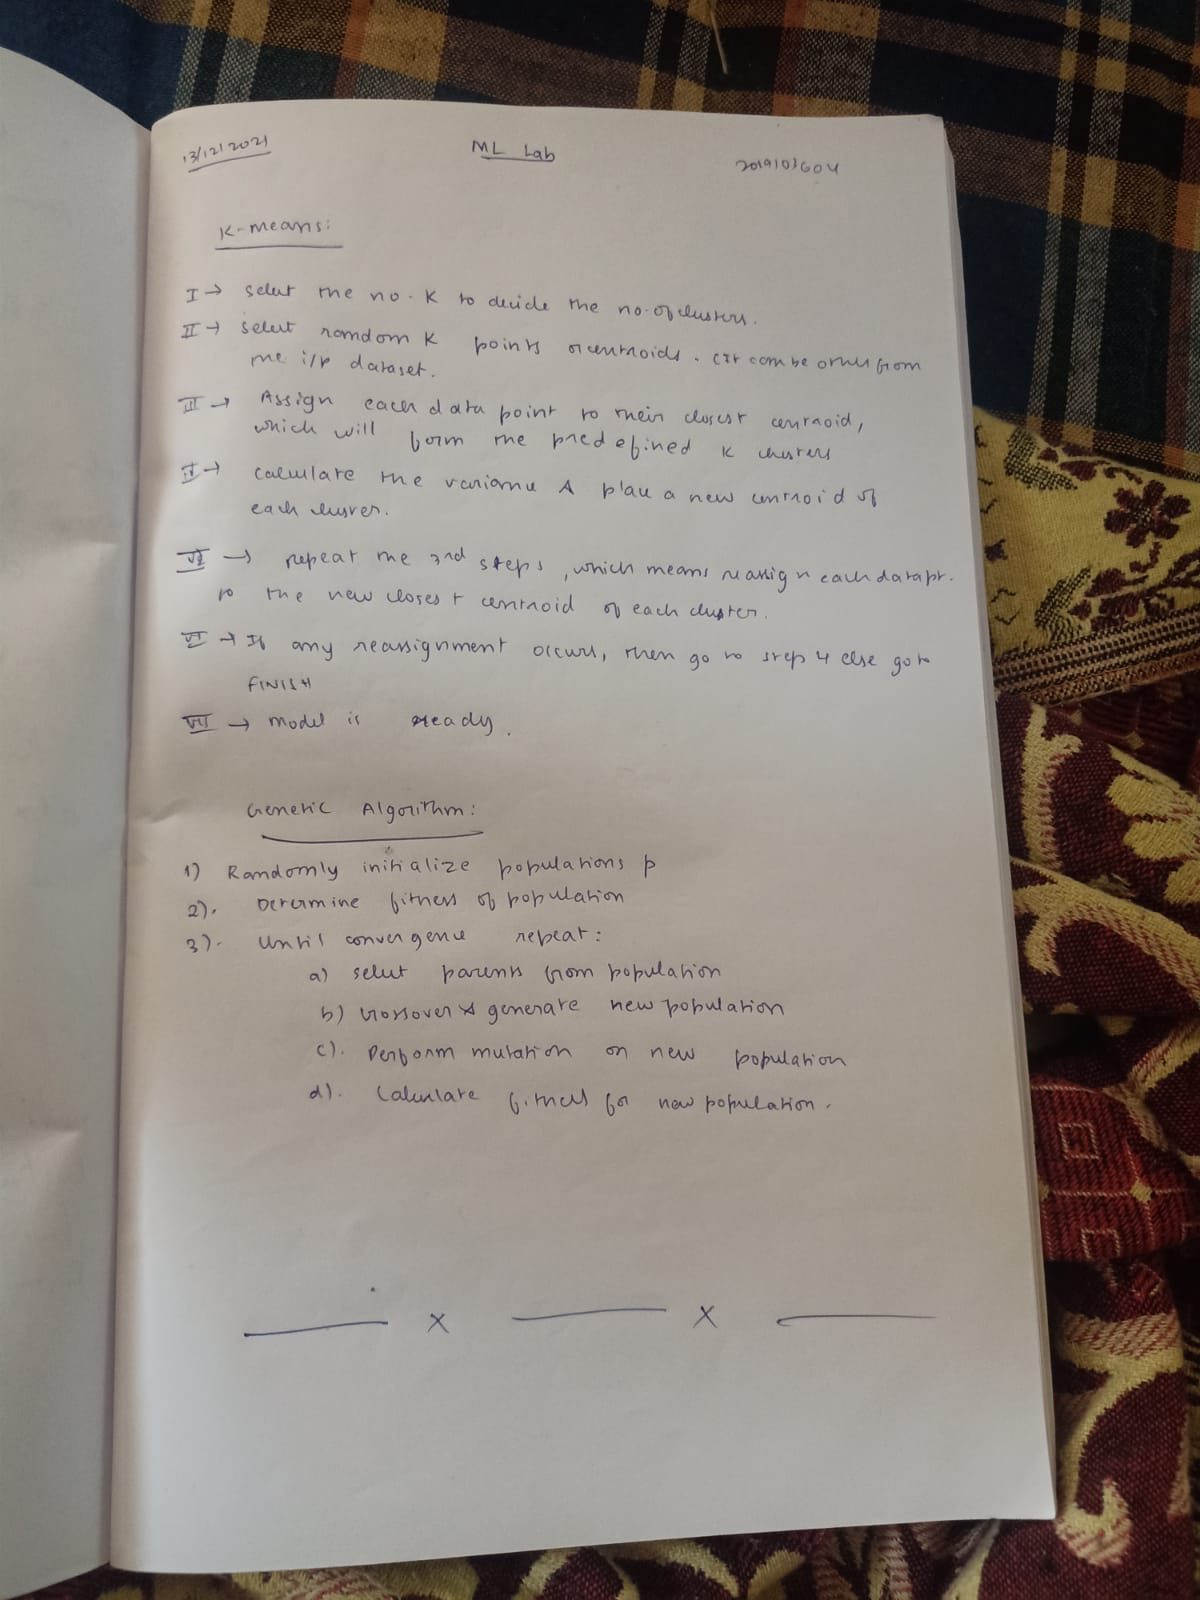 13/12/2021
ML Lab
2019103604
K-means:
I → Select the no. K to decide the no. of clusters.
II → Select random K points or centroids. (It can be other from
the i/p dataset.
III → Assign each data point to their closest centroid,
which will form the predefined K clusters
IV → Calculate the variance & place a new centroid of
each cluster.
V → repeat the 3rd steps, which means reassign each datapt.
to the new closest centroid of each cluster.
VI → If any reassignment occurs, then go to step 4 else go to
FINISH
VII → Model is ready.
Genetic Algorithm:
1) Randomly initialize populations p
2). Determine fitness of population
3). Until convergence repeat:
a) select parents from population
b) Crossover & generate new population
c). Perform mutation on new population
d). Calculate fitness for new population.